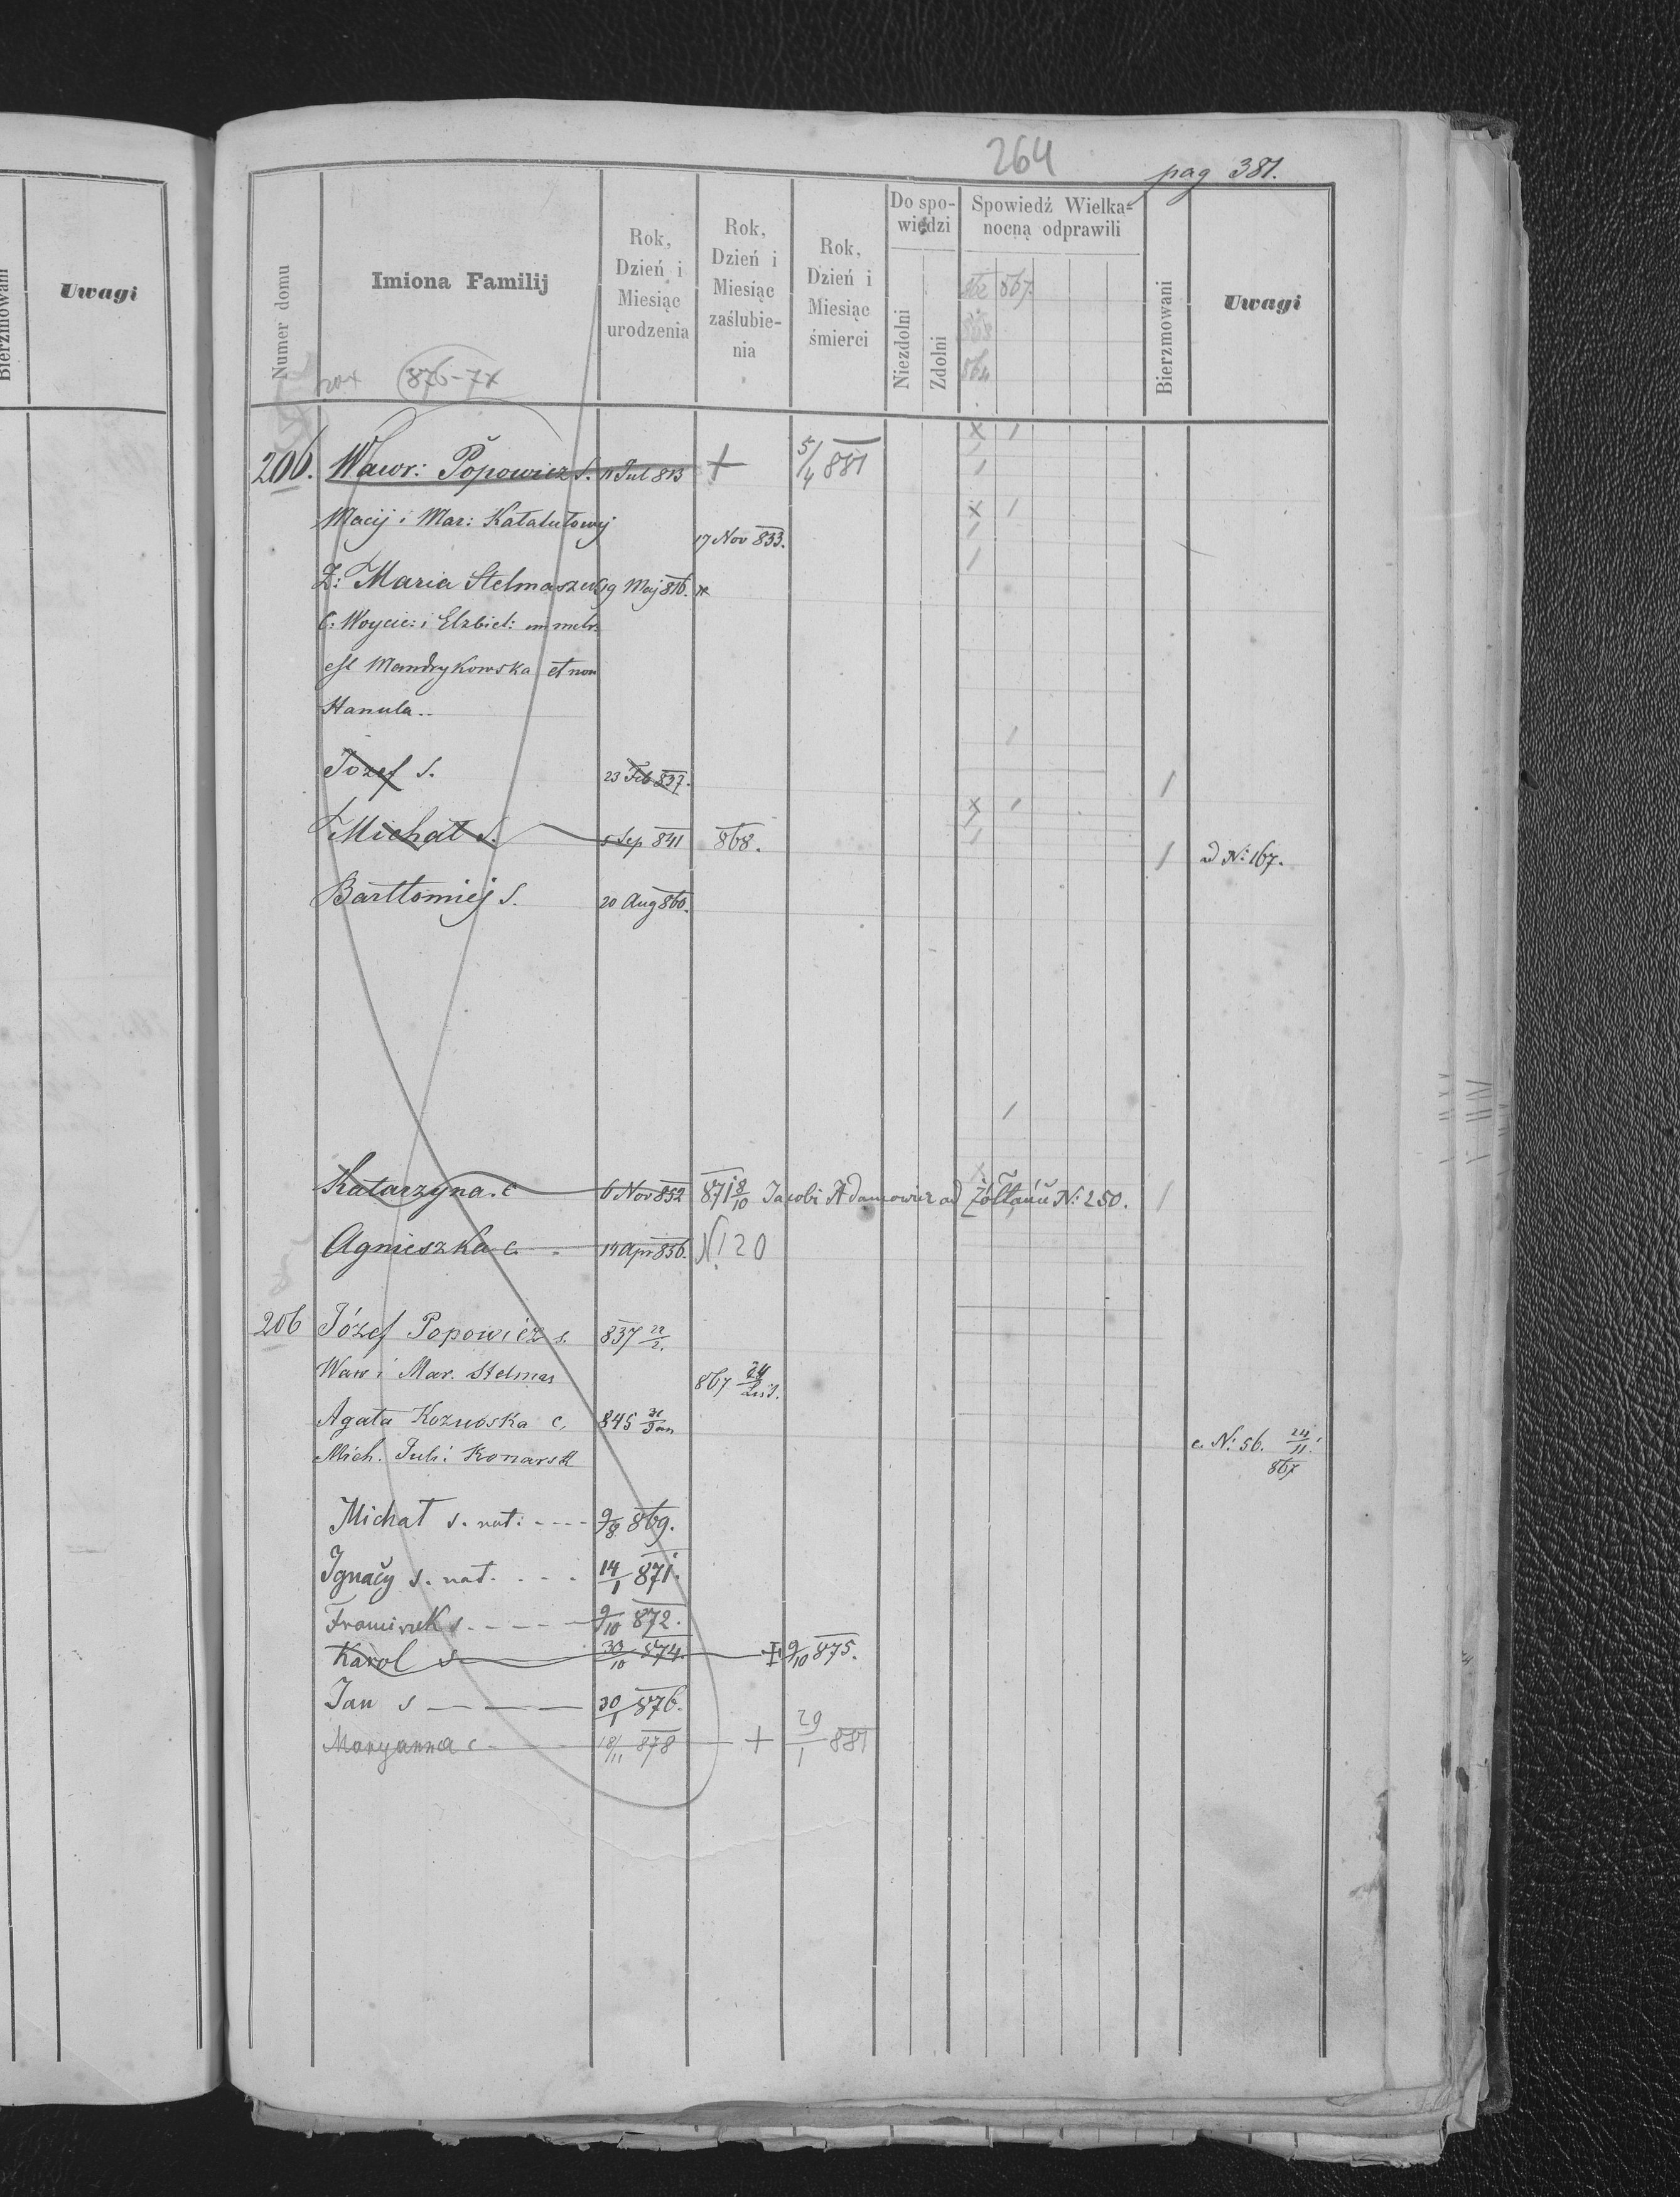 264
pag 381.
Bierzmowani
Uwagi
Numer domu
Imiona Familij
Rok, Dzień i Miesiąc urodzenia
Rok, Dzień i Miesiąc zaślubie-nia
Rok, Dzień i Miesiąc śmierci
Do spo-wiedzi
Niezdolni
Zdolni
Spowiedź Wielka-nocną odprawili
867.
864
Bierzmowani
Uwagi
876-7x
206. Wawr: Popowicz s. Jul 813 + 5/4 881
Macij i Mar: Katalutowij
17 Nov 833.
Ż: Maria Stelmaszew 19 Maj 816.
C: Woycie: i Elzbiet: in metr:
est Mandrykowska et non
Hanula..
Józef s. 23 Feb 837.
Michał s. 5 Sep 841 868. ad N: 167.
Bartłomiej s. 20 Aug 860.
Katarzyna. c 6 Nov 852 871 8/10 Jacobi Adamowicz ad Żółtańce N: 250.
Agnieszka c. 14 Apr 856. N: 20
206 Józef Popowicz s. 837 22/2.
Waw i Mar. Stelmas
867 24/List.
Agata Kozuoska c, 845 31/Jan
c. N: 56. 24/11 867
Mich. Juli: Konarsk
Michał s. nat: 9/8 869.
Ignacy s. nat. 14/1 871.
Franciszek s. 9/10 872.
Karol s 30/10 874. + 9/10 875.
Jan s 30/1 876.
Maryanna c 18/11 878 + 29/1 881